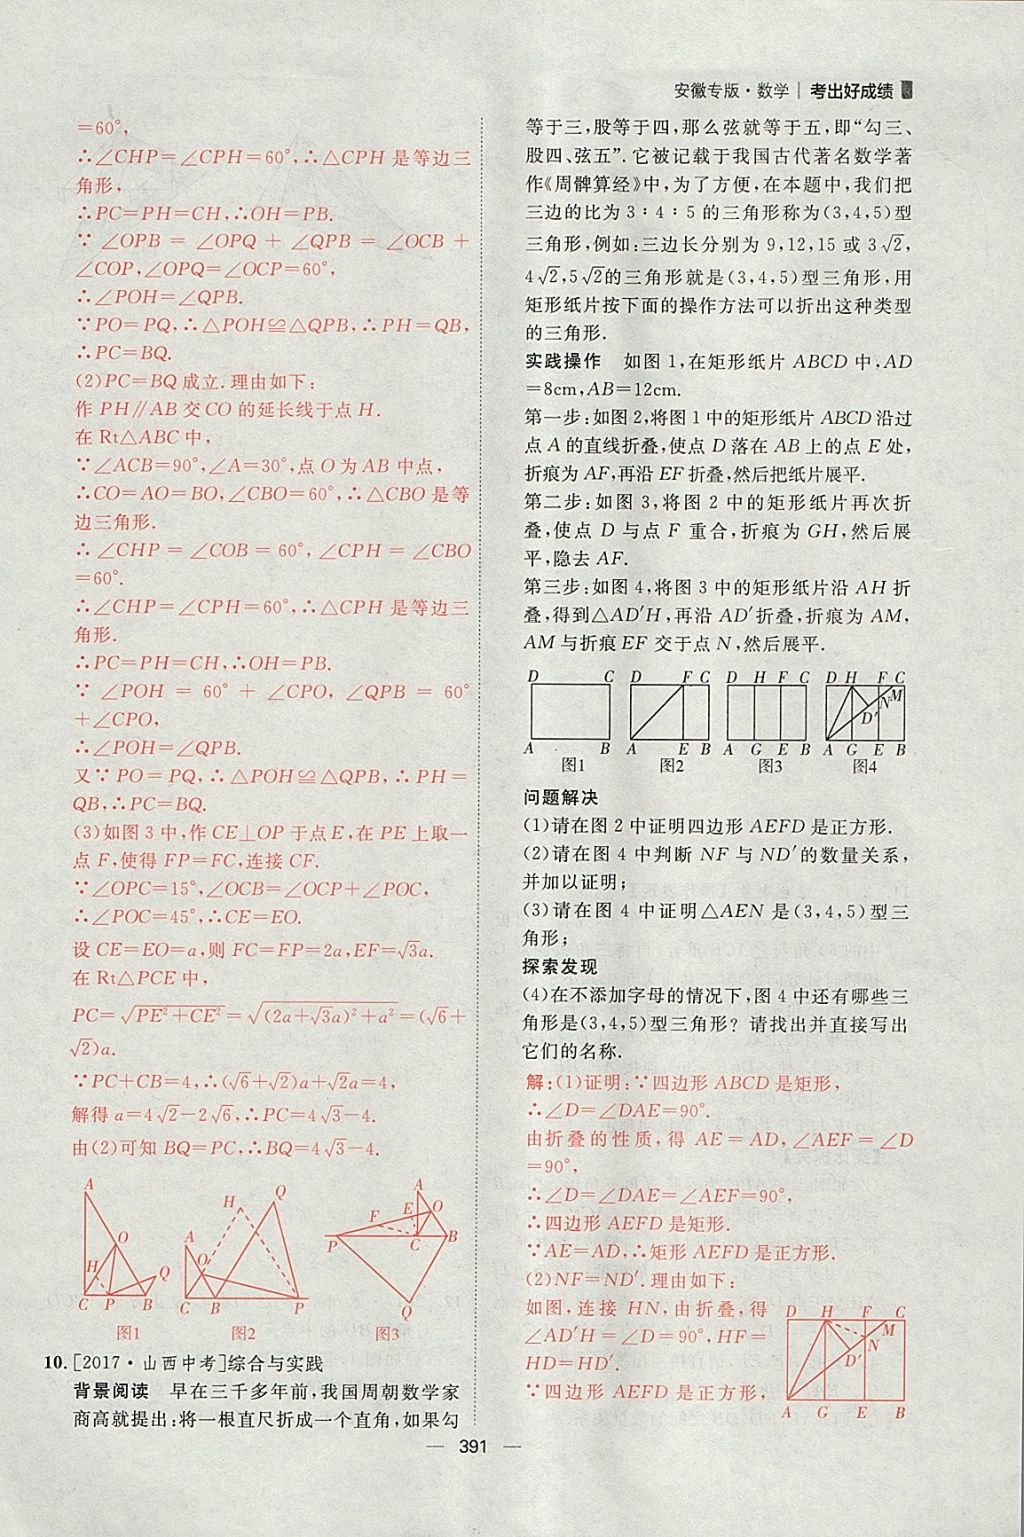 安徽专版·数学 | 考出好成绩
=60°,
∴∠CHP=∠CPH=60°,∴△CPH 是等边三
角形,
∴PC=PH=CH,∴OH=PB.
∵ ∠OPB = ∠OPQ + ∠QPB = ∠OCB +
∠COP,∠OPQ=∠OCP=60°,
∴∠POH=∠QPB.
∵PO=PQ,∴△POH≌△QPB,∴PH=QB,
∴PC=BQ.
(2)PC=BQ成立.理由如下:
作 PH∥AB交CO的延长线于点H.
在 Rt△ABC 中,
∵∠ACB=90°,∠A=30°,点O为AB中点,
∴CO=AO=BO,∠CBO=60°,∴△CBO是等
边三角形.
∴ ∠CHP = ∠COB = 60°, ∠CPH = ∠CBO
=60°.
∴∠CHP=∠CPH=60°,∴△CPH 是等边三
角形.
∴PC=PH=CH,∴OH=PB.
∵ ∠POH = 60° + ∠CPO, ∠QPB = 60°
+∠CPO,
∴∠POH=∠QPB.
又∵PO=PQ,∴△POH≌△QPB,∴PH=
QB,∴PC=BQ.
(3)如图3中,作CE⊥OP于点E,在PE上取一
点F,使得FP=FC,连接CF.
∵∠OPC=15°,∠OCB=∠OCP+∠POC,
∴∠POC=45°,∴CE=EO.
设CE=EO=a,则FC=FP=2a,EF=√3a.
在 Rt△PCE 中,
PC=√(PE²+CE²)=√((2a+√3a)²+a²)=(√6+
√2)a.
∵PC+CB=4,∴(√6+√2)a+√2a=4,
解得a=4√2-2√6,∴PC=4√3-4.
由(2)可知BQ=PC,∴BQ=4√3-4.
A O H Q C P B
图1
H Q A O C B P
图2
A E O F P C B Q
图3
10.[2017·山西中考]综合与实践
背景阅读 早在三千多年前,我国周朝数学家
商高就提出:将一根直尺折成一个直角,如果勾
等于三,股等于四,那么弦就等于五,即“勾三、
股四、弦五”.它被记载于我国古代著名数学著
作《周髀算经》中,为了方便,在本题中,我们把
三边的比为 3∶4∶5 的三角形称为(3,4,5)型
三角形,例如:三边长分别为 9,12,15 或 3√2,
4√2,5√2的三角形就是(3,4,5)型三角形,用
矩形纸片按下面的操作方法可以折出这种类型
的三角形.
实践操作 如图 1,在矩形纸片 ABCD 中,AD
=8cm,AB=12cm.
第一步:如图2,将图1中的矩形纸片ABCD沿过
点A的直线折叠,使点D落在AB上的点E处,
折痕为AF,再沿EF折叠,然后把纸片展平.
第二步:如图 3,将图 2 中的矩形纸片再次折
叠,使点 D 与点 F 重合,折痕为 GH,然后展
平,隐去AF.
第三步:如图 4,将图 3 中的矩形纸片沿 AH 折
叠,得到△AD′H,再沿 AD′折叠,折痕为 AM,
AM 与折痕 EF 交于点 N,然后展平.
D C A B
图1
D F C A E B
图2
D H F C A G E B
图3
D H F C M N D′ A G E B
图4
问题解决
(1)请在图 2 中证明四边形 AEFD 是正方形.
(2)请在图 4 中判断 NF 与 ND′的数量关系,
并加以证明;
(3)请在图 4 中证明△AEN 是(3,4,5)型三
角形;
探索发现
(4)在不添加字母的情况下,图 4 中还有哪些三
角形是(3,4,5)型三角形?请找出并直接写出
它们的名称.
解:(1)证明:∵四边形 ABCD 是矩形,
∴∠D=∠DAE=90°.
由折叠的性质,得 AE=AD,∠AEF=∠D
=90°,
∴∠D=∠DAE=∠AEF=90°,
∴四边形 AEFD 是矩形.
∵AE=AD,∴矩形 AEFD 是正方形.
(2)NF=ND′.理由如下:
如图,连接 HN,由折叠,得
∠AD′H=∠D=90°,HF=
HD=HD′.
∵四边形 AEFD 是正方形,
D H F C M N D′ A G E B
— 391 —